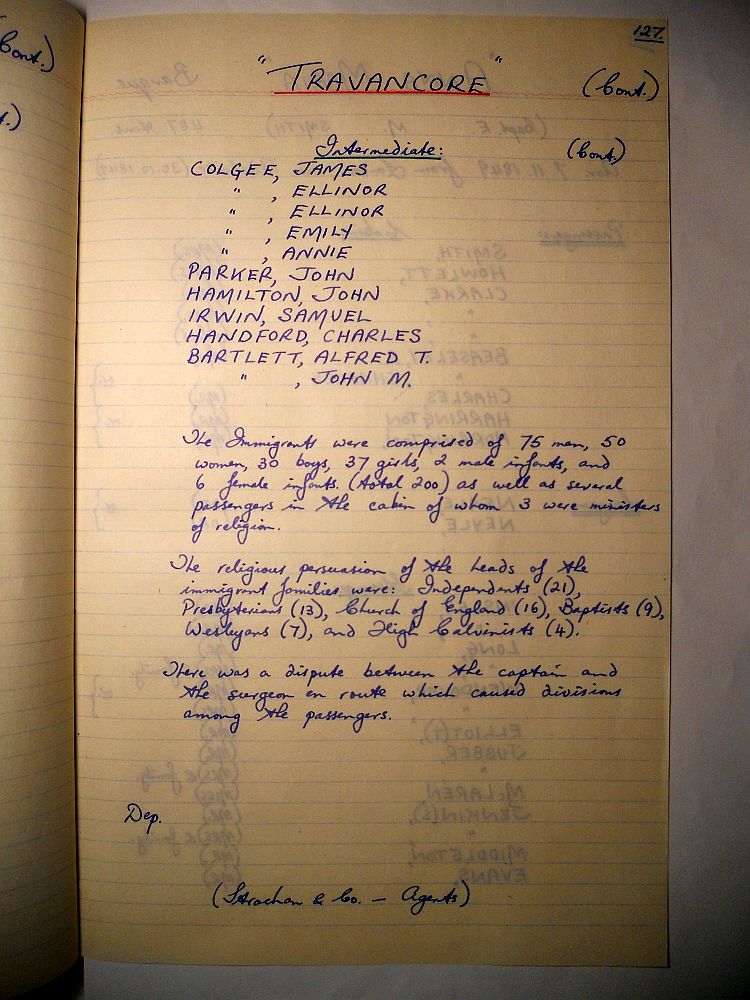 Cont.)
127.
"TRAVANCORE" (Cont.)
Intermediate: (Cont.)
COLGEE, JAMES
" , ELLINOR
" , ELLINOR
" , EMILY
" , ANNIE
PARKER, JOHN
HAMILTON, JOHN
IRWIN, SAMUEL
HANDFORD, CHARLES
BARTLETT, ALFRED T.
" , JOHN M.
The Immigrants were comprised of 75 men, 50
women, 30 boys, 37 girls, 2 male infants, and
6 female infants. (total 200) as well as several
passengers in the cabin of whom 3 were ministers
of religion.
The religious persuasion of the heads of the
immigrant families were: Independents (21),
Presbyterians (13), Church of England (16), Baptists (9),
Wesleyans (7), and High Calvinists (4).
There was a dispute between the captain and
the surgeon en route which caused divisions
among the passengers.
Dep.
(Strachan & Co. – Agents)